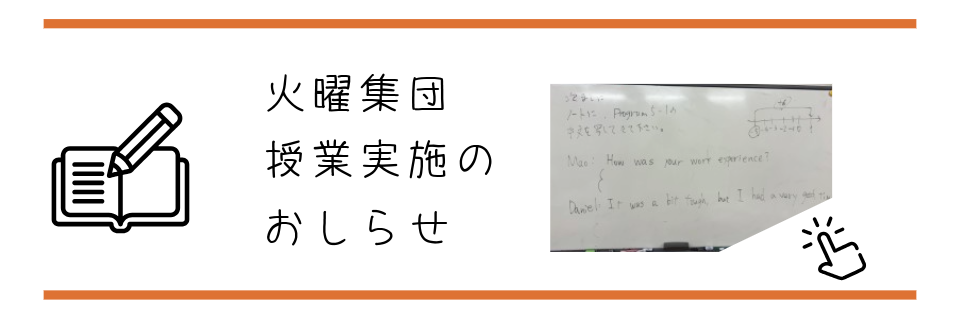 火曜集団
授業実施の
おしらせ
ノートに、Program 5-1の
本文を写してきて下さい。
Mao: How was your work experience?
Daniel: It was a bit tough, but I had a very good